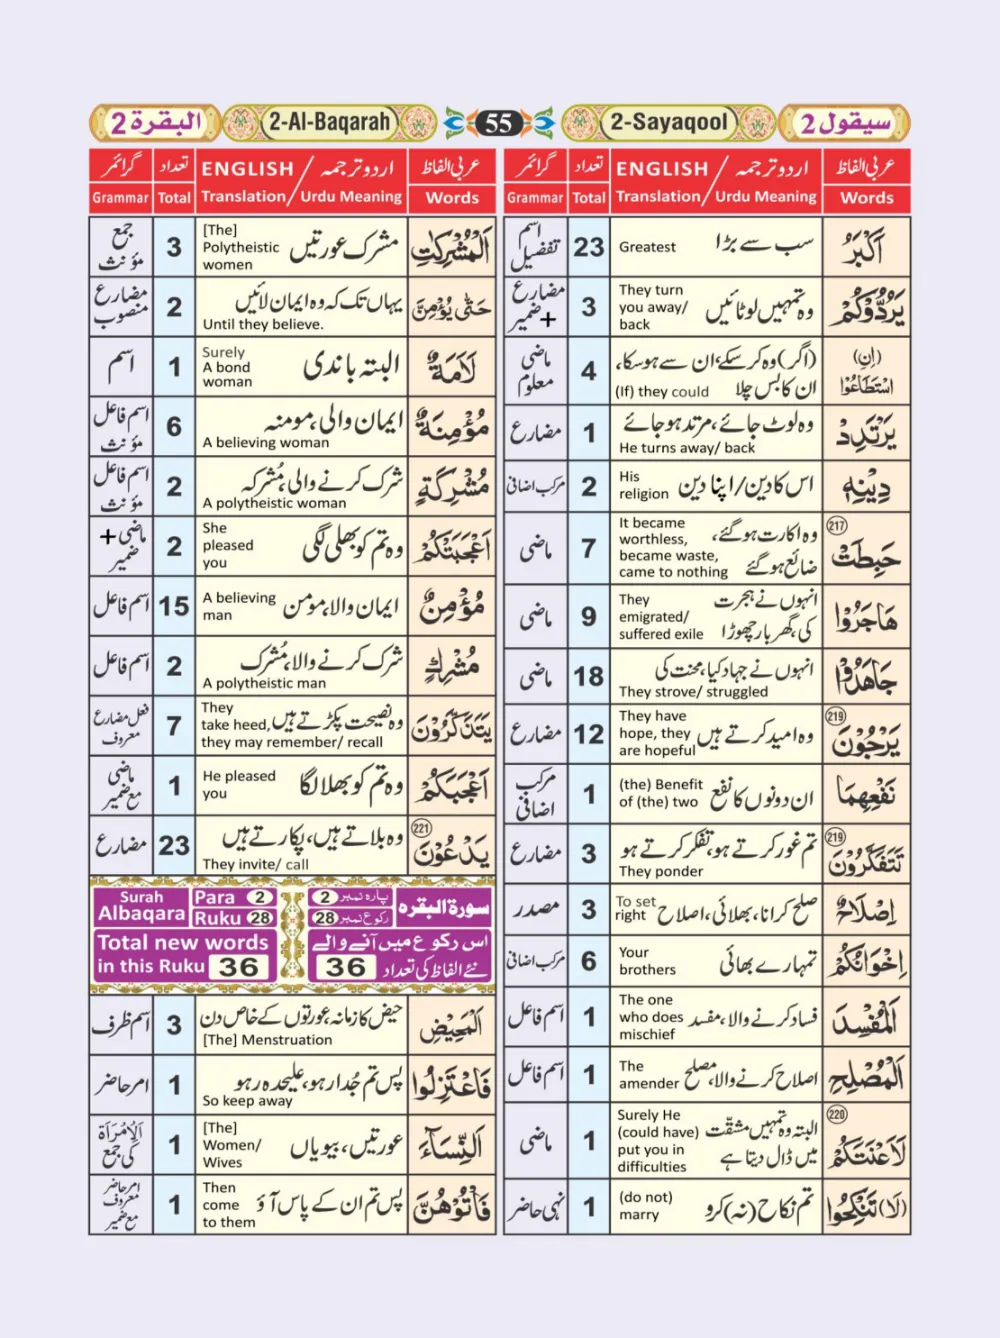 سيقول 2
2-Sayaqool
55
2-Al-Baqarah
البقرة 2
عربی الفاظ اردو ترجمہ / ENGLISH تعداد گرائمر
Words Urdu Meaning / Translation Total Grammar
اَكْبَرُ سب سے بڑا Greatest 23 اسم تفضیل
يَرُدُّوْكُمْ وہ تمہیں لوٹائیں They turn you away/ back 3 مضارع + ضمیر
(اِنِ) اسْتَطَاعُوْا (اگر) وہ کر سکے، ان سے ہو سکا، ان کا بس چلا (If) they could 4 ماضی معلوم
يَرْتَدِدْ وہ لوٹ جائے، مرتد ہو جائے He turns away/ back 1 مضارع
دِيْنِهٖ اس کا دین/ اپنا دین His religion 2 مرکب اضافی
(217) حَبِطَتْ وہ اکارت ہو گئے، ضائع ہو گئے It became worthless, became waste, came to nothing 7 ماضی
هَاجَرُوْا انہوں نے ہجرت کی، گھر بار چھوڑا They emigrated/ suffered exile 9 ماضی
جَاهَدُوْا انہوں نے جہاد کیا، محنت کی They strove/ struggled 18 ماضی
(219) يَرْجُوْنَ وہ امید کرتے ہیں They have hope, they are hopeful 12 مضارع
نَفْعِهِمَا ان دونوں کا نفع (the) Benefit of (the) two 1 مرکب اضافی
(219) تَتَفَكَّرُوْنَ تم غور کرتے ہو، تفکر کرتے ہو They ponder 3 مضارع
اِصْلَاحٌ صلح کرانا، بھلائی، اصلاح To set right 3 مصدر
اِخْوَانُكُمْ تمہارے بھائی Your brothers 6 مرکب اضافی
اَلْمُفْسِدَ فساد کرنے والا، مفسد The one who does mischief 1 اسم فاعل
اَلْمُصْلِحِ اصلاح کرنے والا، مصلح The amender 1 اسم فاعل
(220) لَاَعْنَتَكُمْ البتہ وہ تمہیں مشقّت میں ڈال دیتا ہے Surely He (could have) put you in difficulties 1 ماضی
(لَا) تَنْكِحُوا تم نکاح (نہ) کرو (do not) marry 1 نہی حاضر
عربی الفاظ اردو ترجمہ / ENGLISH تعداد گرائمر
Words Urdu Meaning / Translation Total Grammar
اَلْمُشْرِكٰتِ مشرک عورتیں [The] Polytheistic women 3 جمع مؤنث
حَتّٰى يُؤْمِنَّ یہاں تک کہ وہ ایمان لائیں Until they believe. 2 مضارع منصوب
لَاَمَةٌ البتہ باندی Surely A bond woman 1 اسم
مُؤْمِنَةٌ ایمان والی، مومنہ A believing woman 6 اسم فاعل مؤنث
مُشْرِكَةٍ شرک کرنے والی، مُشرکہ A polytheistic woman 2 اسم فاعل مؤنث
اَعْجَبَتْكُمْ وہ تم کو بھلی لگی She pleased you 2 ماضی + ضمیر
مُؤْمِنٌ ایمان والا، مومن A believing man 15 اسم فاعل
مُشْرِكٍ شرک کرنے والا، مُشرک A polytheistic man 2 اسم فاعل
يَتَذَكَّرُوْنَ وہ نصیحت پکڑتے ہیں They take heed, they may remember/ recall 7 فعل مضارع معروف
اَعْجَبَكُمْ وہ تم کو بھلا لگا He pleased you 1 ماضی مع ضمیر
(221) يَدْعُوْنَ وہ بلاتے ہیں، پکارتے ہیں They invite/ call 23 مضارع
سورة البقره پارہ نمبر 2 رکوع نمبر 28
Surah Albaqara Para 2 Ruku 28
اس رکوع میں آنے والے نئے الفاظ کی تعداد 36
Total new words in this Ruku 36
اَلْمَحِيْضِ حیض کا زمانہ، عورتوں کے خاص دن [The] Menstruation 3 اسم ظرف
فَاعْتَزِلُوا پس تم جُدا رہو، علیحدہ رہو So keep away 1 امر حاضر
اَلنِّسَآءَ عورتیں، بیویاں [The] Women/ Wives 1 اَلْاِمْرَاَة کی جمع
فَاْتُوْهُنَّ پس تم ان کے پاس آؤ Then come to them 1 امر حاضر معروف مع ضمیر